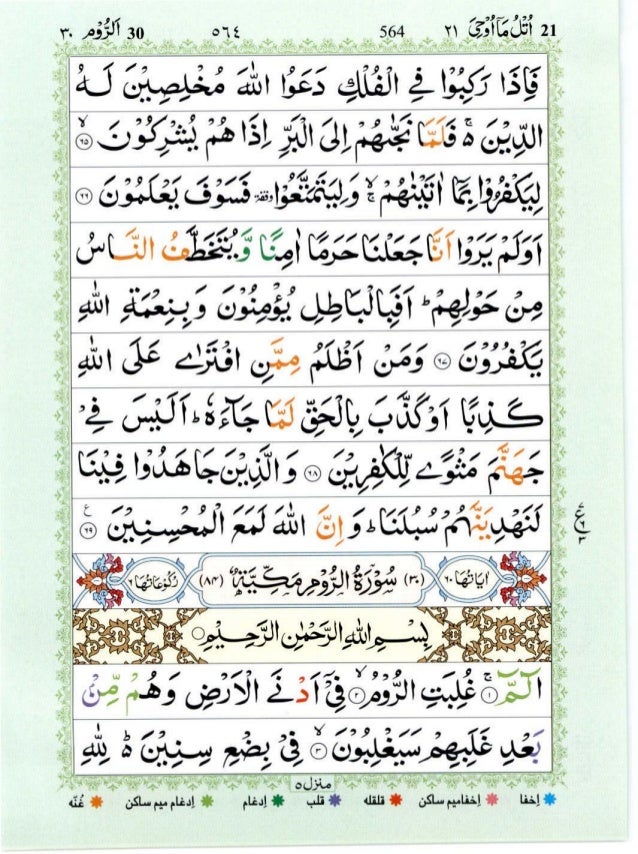 اَلرُّوْم ٣٠ 30 ٥٦٤ 564 اُتْلُ مَآ اُوْحِیَ ٢١ 21
فَاِذَا رَكِبُوْا فِی الْفُلْكِ دَعَوُا اللّٰهَ مُخْلِصِیْنَ لَهُ
الدِّیْنَ ۚ۬ فَلَمَّا نَجّٰىهُمْ اِلَى الْبَرِّ اِذَا هُمْ یُشْرِكُوْنَ ۙ﴿٦٥﴾
لِیَكْفُرُوْا بِمَاۤ اٰتَیْنٰهُمْ ۙۚ وَلِیَتَمَتَّعُوْا ٝوقفة فَسَوْفَ یَعْلَمُوْنَ ﴿٦٦﴾
اَوَلَمْ یَرَوْا اَنَّا جَعَلْنَا حَرَمًا اٰمِنًا وَّیُتَخَطَّفُ النَّاسُ
مِنْ حَوْلِهِمْ ؕ اَفَبِالْبَاطِلِ یُؤْمِنُوْنَ وَبِنِعْمَةِ اللّٰهِ
یَكْفُرُوْنَ ﴿٦٧﴾ وَمَنْ اَظْلَمُ مِمَّنِ افْتَرٰى عَلَى اللّٰهِ
كَذِبًا اَوْ كَذَّبَ بِالْحَقِّ لَمَّا جَآءَهٗ ؕ اَلَیْسَ فِیْ
جَهَنَّمَ مَثْوًى لِّلْكٰفِرِیْنَ ﴿٦٨﴾ وَالَّذِیْنَ جَاهَدُوْا فِیْنَا
لَنَهْدِیَنَّهُمْ سُبُلَنَا ؕ وَاِنَّ اللّٰهَ لَمَعَ الْمُحْسِنِیْنَ ﴿٦٩﴾ ع
اٰیَاتُهَا ٦٠ (٣٠) سُوْرَةُ الرُّوْمِ مَكِّیَّةٌ (٨٤) رُكُوْعَاتُهَا ٦
بِسْمِ اللّٰهِ الرَّحْمٰنِ الرَّحِیْمِ
الٓمّٓ ۚ﴿١﴾ غُلِبَتِ الرُّوْمُ ۙ﴿٢﴾ فِیْۤ اَدْنَى الْاَرْضِ وَهُمْ مِّنْ
بَعْدِ غَلَبِهِمْ سَیَغْلِبُوْنَ ۙ﴿٣﴾ فِیْ بِضْعِ سِنِیْنَ ؕ۬ لِلّٰهِ
منزل ٥
إخفا إخفامیم ساکن قلقله قلب إدغام إدغام میم ساکن غُنّه